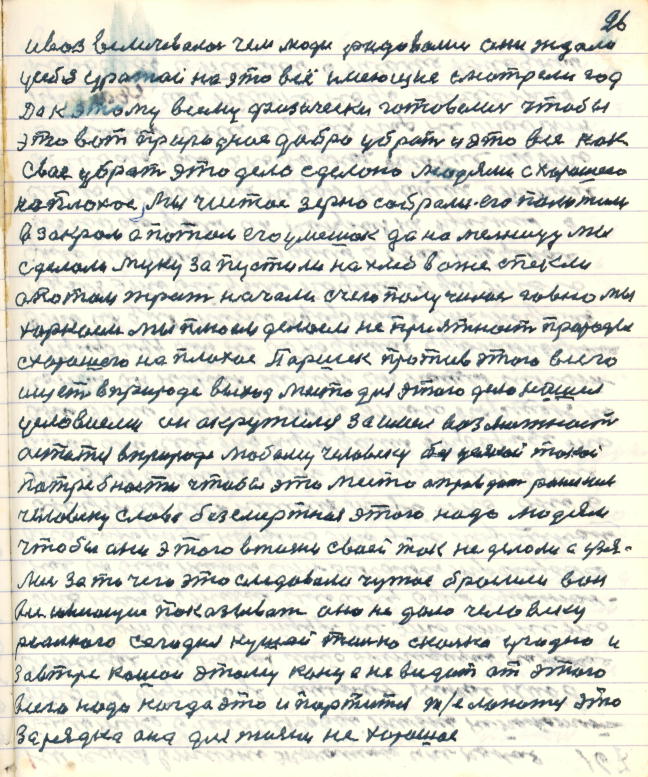 26
чем люди радовали они ждали
на это всё имеющие смотрели год
Да к этому всему физически готовились чтобы
это вот природное добро убрат и это все как
свае убрат это дело сделоно людями с хорошего
на плохое, мы чистое зерно собрали его положили
в закрома а потом его у мешок да на мелницу мы
сделали муку запустили на хлеб в оже спекли
а потом жрат начали с чего получилос говно мы
харкаем мы плюем делаем не приятност природе
с хорошего на плохое Паршек против этого всего
ищет в природе выход место для этого дело нашел
условием он окружился за имел возможност
остатся в природе любому человеку без усякой такой
потребности чтобы это место оправдат
человеку слова безсмертная этого надо людям
чтобы они этого в жизни своей так не делоли а взя-
лис за то чего это следовало чужое бросили вон
показыват оно не дало человеку
сегодня кушай только сколко угодно и
завтре конца этому концу не видат от этого
всего надо когда это и портится т/е ложотся это
зарядка она для жизни не хорошае